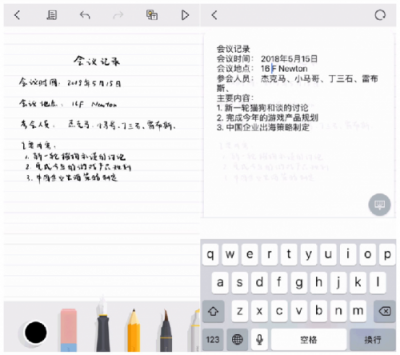 会议记录
会议时间：2018年5月15日
会议地点：16F Newton
参会人员：杰克马、小马哥、丁三石、雷布斯.
主要内容：
1. 新一轮猫狗和谈的讨论
2. 完成今年的游戏产品规划
3. 中国企业出海策略制定
会议记录
会议时间：2018年5月15日
会议地点：16F Newton
参会人员：杰克马、小马哥、丁三石、雷布
斯、
主要内容：
1. 新一轮猫狗和谈的讨论
2. 完成今年的游戏产品规划
3. 中国企业出海策略制定
q w e r t y u i o p
a s d f g h j k l
z x c v b n m
123 空格 换行